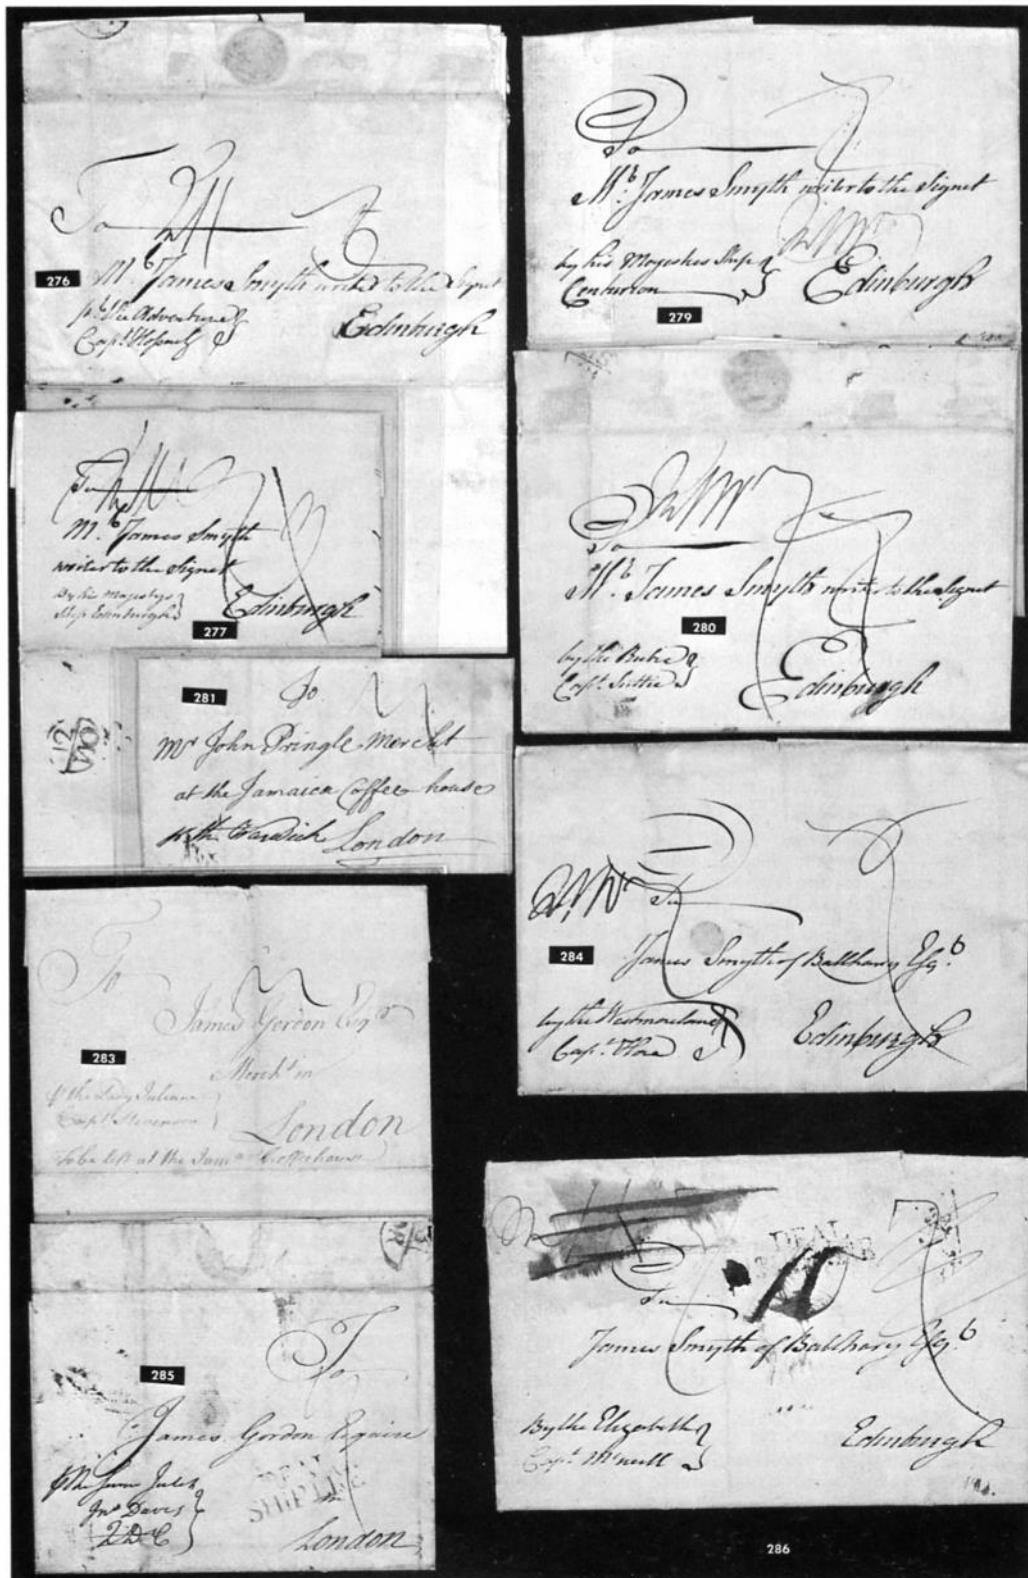 To
276
Mr. James Smyth writer to the Signet
pr. the Adventure
Capt.
Edinburgh
To
Mr. James Smyth
writer to the Signet
By his Majestys
Ship Edinburgh
Edinburgh
277
281
To
Mr John Pringle Mercht
at the Jamaica Coffee house
London
283
To
James Gordon Esqr
Mercht in
London
p the Lady Juliana
Capt Stevenson
To be left at the Jama Coffeehouse
285
To
James Gordon Esquire
in
London
Jno Davis
Q D C
DEAL
SHIP LRE
To
Mr. James Smyth writer to the Signet
by his Majesties Ship
Centurion
Edinburgh
279
To
Mr. James Smyth writer to the Signet
280
by the
Capt. Suttie
Edinburgh
To
284
James Smyth of Balhary Esqr
by the Westmoreland
Capt.
Edinburgh
DEAL
To
James Smyth of Balhary Esqr
By the Elizabeth
Capt. Mcneill
Edinburgh
286